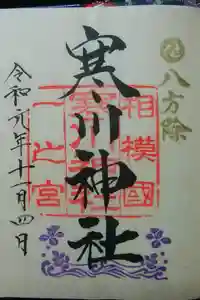 八方除
相模國
寒川神社
一之宮
令和元年十一月四日